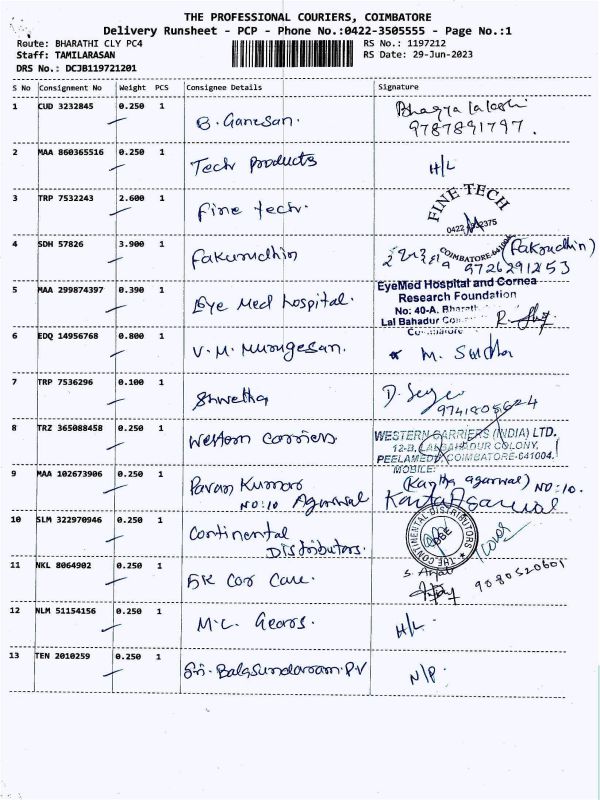 THE PROFESSIONAL COURIERS, COIMBATORE
Delivery Runsheet - PCP - Phone No.:0422-3505555 - Page No.:1
Route: BHARATHI CLY PC4 RS No.: 1197212
Staff: TAMILARASAN RS Date: 29-Jun-2023
DRS No.: DCJB119721201
S No Consignment No Weight PCS Consignee Details Signature
1 CUD 3232845 0.250 1 B. Ganesan.
9787891797.
2 MAA 860365516 0.250 1 Tech products H/L
3 TRP 7532243 2.600 1 Fine tech. FINE TECH
COIMBATORE-641004
4 SDH 57826 3.900 1 Fakurudhin (Fakrudhin)
9726291253
5 MAA 299874397 0.390 1 Eye Med hospital. EyeMed Hospital and Cornea
Research Foundation
No: 40-A, Bharath
Lal Bahadur
6 EDQ 14956768 0.800 1 V.M. Murugesan. M. Sudha
7 TRP 7536296 0.100 1 Shwetha
8 TRZ 365088458 0.250 1 Western Carriers WESTERN CARRIERS (INDIA) LTD.
12-B, LALBAHADUR COLONY,
PEELAMEDU, COIMBATORE-641004.
MOBILE:
9 MAA 102673906 0.250 1 Pavan Kumar (Kantha agarwal) NO:10.
NO:10 Agarwal Kanta Agarwal
10 SLM 322970946 0.250 1 Continental THE CONTINENTAL DISTRIBUTORS
Distributors. CBE
11 NKL 8064902 0.250 1 Car Care. 9080520601
12 NLM 51154156 0.250 1 M.C. Gears. H/L.
13 TEN 2010259 0.250 1 Sri. Balasundaram.P.V N/P.